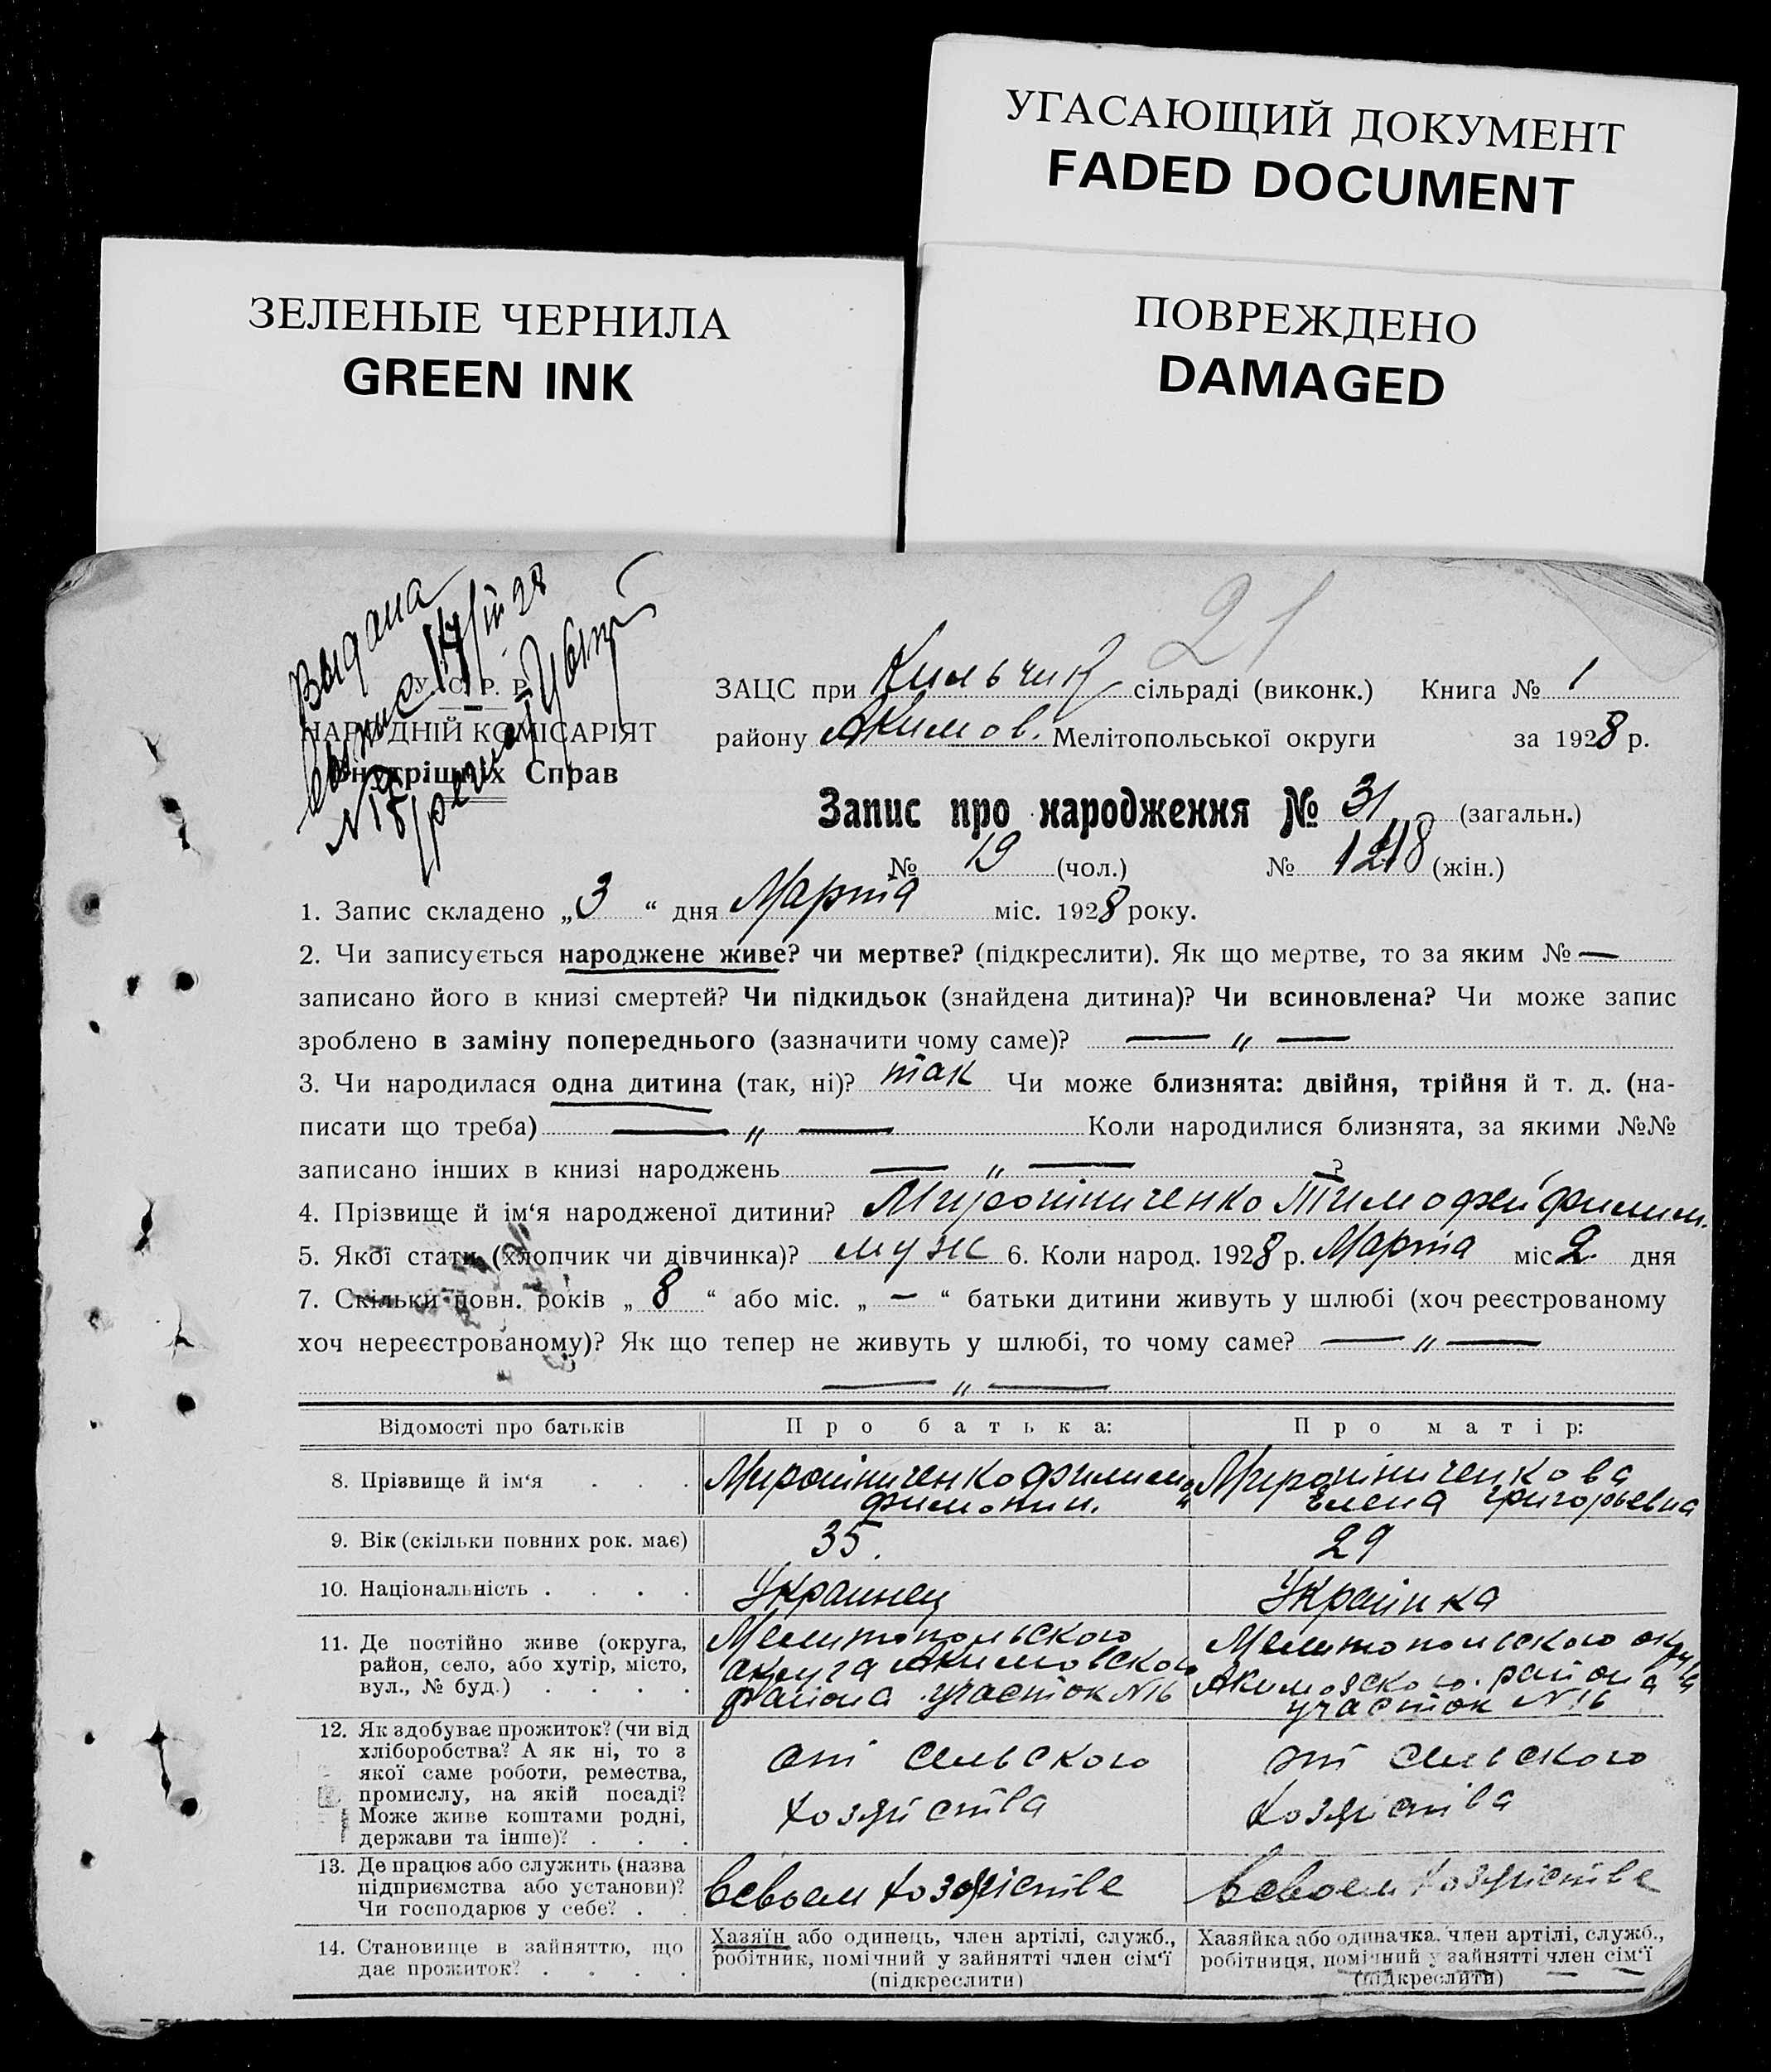 УГАСАЮЩИЙ ДОКУМЕНТ
FADED DOCUMENT
ЗЕЛЕНЫЕ ЧЕРНИЛА
GREEN INK
ПОВРЕЖДЕНО
DAMAGED
21
Выдана
14/III 28
№ 15
У. С. Р. Р.
НАРОДНІЙ КОМІСАРІЯТ
Внутрішніх Справ
ЗАЦС при Кильчик сільраді (виконк.) Книга № 1
району Акимов. Мелітопольської округи за 1928 р.
Запис про народження № 31 (загальн.)
№ 19 (чол.) № (жін.)
1. Запис складено „3“ дня Марта міс. 1928 року.
2. Чи записується народжене живе? чи мертве? (підкреслити). Як що мертве, то за яким № —
записано його в книзі смертей? Чи підкидьок (знайдена дитина)? Чи всиновлена? Чи може запис
зроблено в заміну попереднього (зазначити чому саме)? — „ —
3. Чи народилася одна дитина (так, ні)? так Чи може близнята: двійня, трійня й т. д. (на-
писати що треба) — „ — Коли народилися близнята, за якими №№
записано інших в книзі народжень — „ — ?
4. Прізвище й ім‘я народженої дитини? Мирошниченко Тимофей Филим.
5. Якої стати (хлопчик чи дівчинка)? муж 6. Коли народ. 1928 р. Марта міс 2 дня
7. Скільки повн. років „ 8 “ або міс. „ — “ батьки дитини живуть у шлюбі (хоч реєстрованому
хоч нереєстрованому)? Як що тепер не живуть у шлюбі, то чому саме? — „ —
— „ —
Відомості про батьків Про батька: Про матір:
8. Прізвище й ім‘я Мирошниченко Филимон Мирошниченкова
Елена Григорьевна
9. Вік (скільки повних рок. має) 35. 29
10. Національність Украинец Украінка
11. Де постійно живе (округа, район, село, або хутір, місто, вул., № буд.)
Мелитопольского округа Акимовского района участок №16
Мелитопольского округа Акимовского района участок №16
12. Як здобуває прожиток? (чи від хліборобства? А як ні, то з якої саме роботи, ремества, промислу, на якій посаді? Може живе коштами родні, держави та інше)?
от сельского хозяіства
от сельского хозяіства
13. Де працює або служить (назва підприємства або установи)? Чи господарює у себе?
Всвоем хозяістве
Всвоем хозяістве
14. Становище в зайняттю, що дає прожиток?
Хазяїн або одинець, член артілі, служб., робітник, помічний у зайнятті член сім‘ї (підкреслити)
Хазяйка або одиначка, член артілі, служб., робітниця, помічний у зайнятті член сім‘ї (підкреслити)